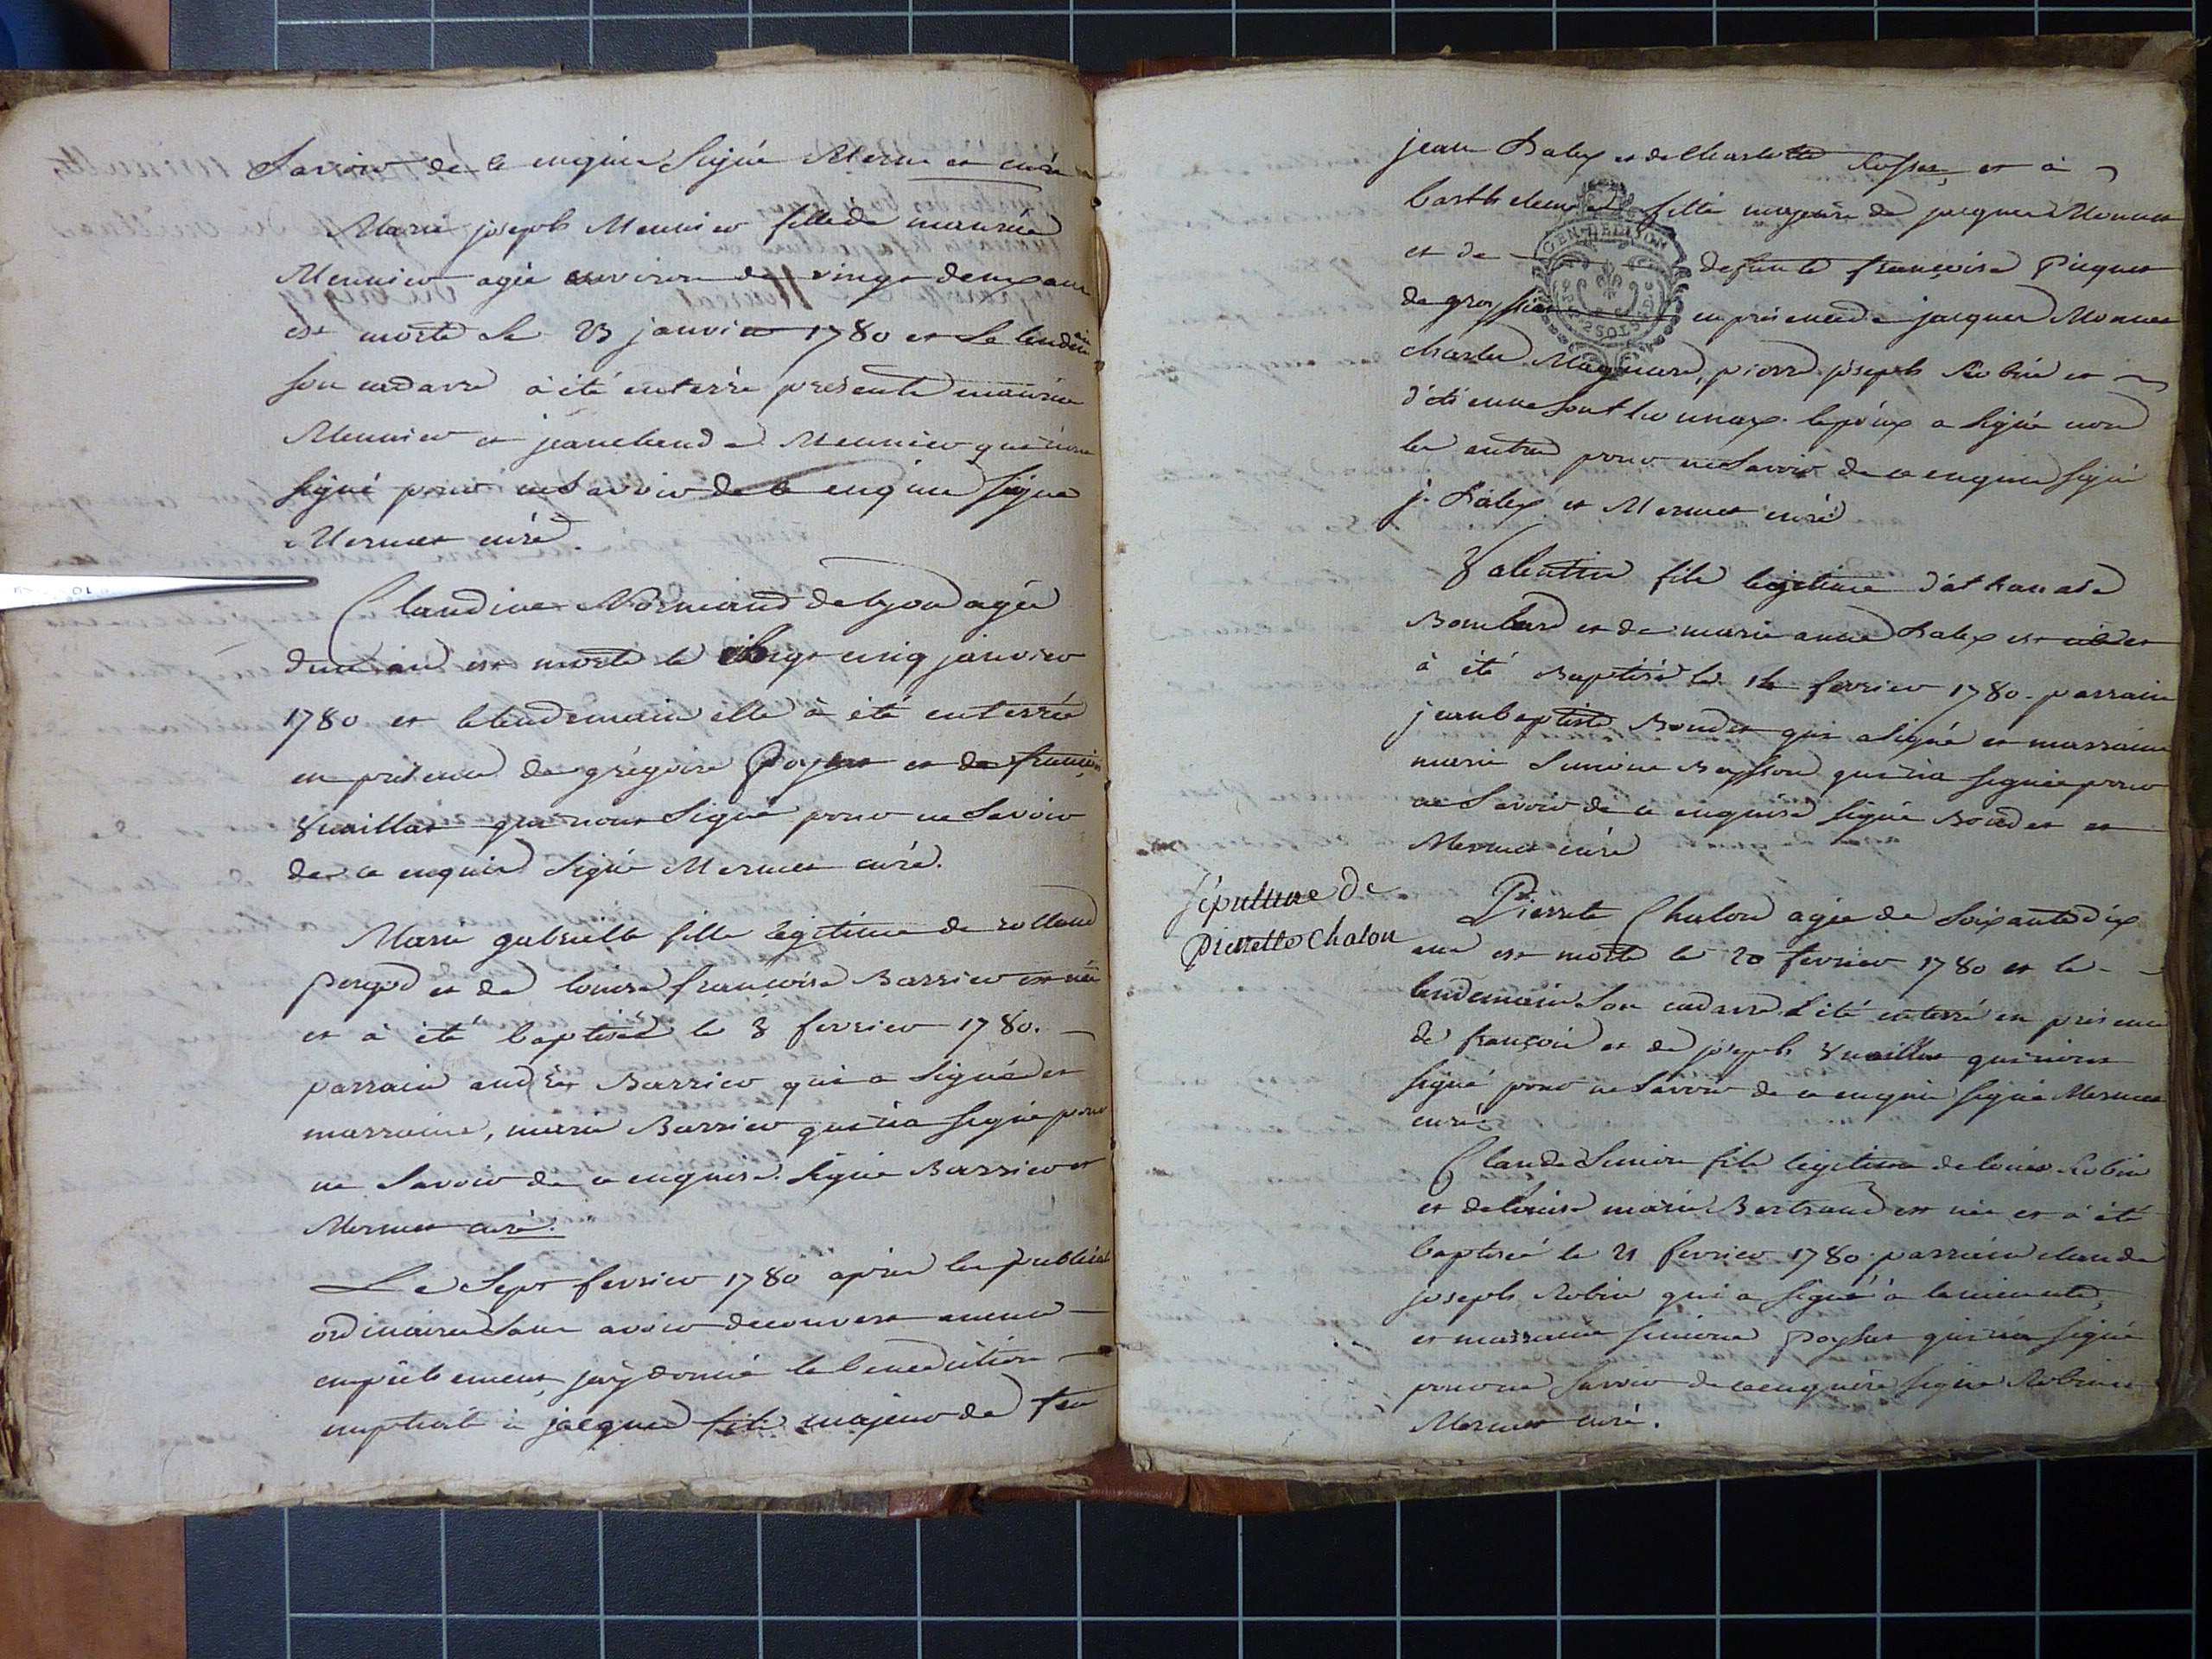 Savoir de ce enquise signé Mermet curé
Marie joseph Meunier fille de maurice
Meunier agée environ de vingt deux ans
est morte le 23 janvier 1780 et le lendemain
son cadavre à été enterré presents maurice
Meunier et jean claude Meunier qui n'ont
signé pour ne savoir de ce enquise signé
Mermet curé.
Claudine Normand de lyon agée
d'un an est morte le vingt cinq janvier
1780 et le lendemain elle à été enterrée
en présence de grégoire et de francois
Vuaillat qui n'ont signé pour ne savoir
de ce enquis signé Mermet curé.
Marie gabrielle fille légitime de rolland
pergod et de louise françoise Barrier est née
et à été baptisée le 3 fevrier 1780.
parrain andré Barrier qui a signé et
marraine, marie Barrier qui n'a signé pour
ne savoir de ce enquise. signé Barrier et
Mermet curé.
Le Sept fevrier 1780 après les publicat
ordinaires sans avoir decouvert aucun
empêchement, j'ay donné la benediction
nuptiale à jacques fils majeur de feu
jean Dalex et de Charlotte et à
barthelemie fille majeure de jacques Monnet
et de defunte françoise Piquet
de en présence de jacques Monnet
charles pierre joseph Robin et
d'étienne l'epoux a signé non
les autres pour ne savoir de ce enquis signé
j. Dalex et Mermet curé
Valentin fils legitime d'athanase
Bombard et de marie anne Dalex est né et
à été Baptisé le 14 fevrier 1780. parrain
jean baptiste Boudet qui a signé et marraine
marie Simone qui n'a signée pour
ne savoir de ce enquise signé Boudet et
Mermet curé
Sépulture de
pierrette chalon
Pierrette Chalon agée de soixante dix
ans est morte le 20 fevrier 1780 et le
lendemain son cadavre à été enterré en présence
de françois et de joseph Vuaillat qui n'ont
signé pour ne savoir de ce enquis signé Mermet
curé.
Claude Simon fils légitime de louis Robin
et de louise marie Bertrand est né et à été
baptisé le 21 fevrier 1780. parrain claude
joseph Robin qui a signé à la minute,
et marraine simone qui n'a signé
pour ne savoir de ce enquise signé Robin et
Mermet curé.